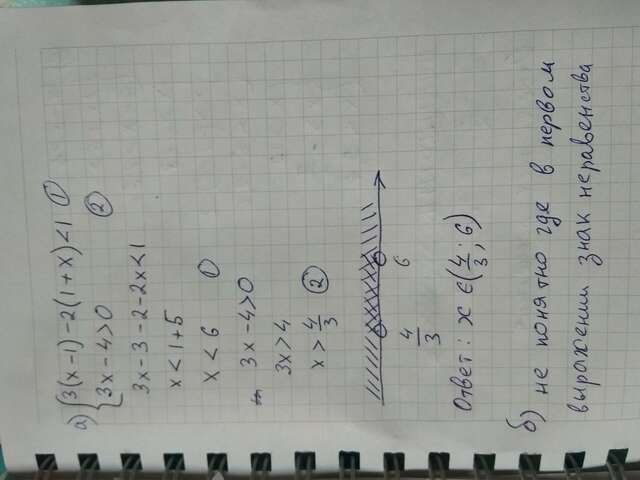 а) {3(x-1)-2(1+x)<1 ①
3x-4>0 ②
3x-3-2-2x<1
x<1+5
x<6 ①
3x-4>0
3x>4
x>4/3 ②
4/3 6
Ответ: x∈(4/3; 6)
б) не понятно где в первом
выражении знак неравенства